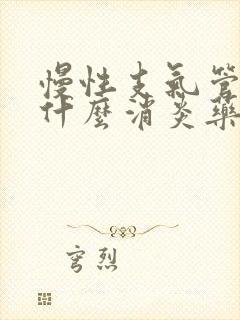 慢性支氣管
什麼消炎藥
穹烈